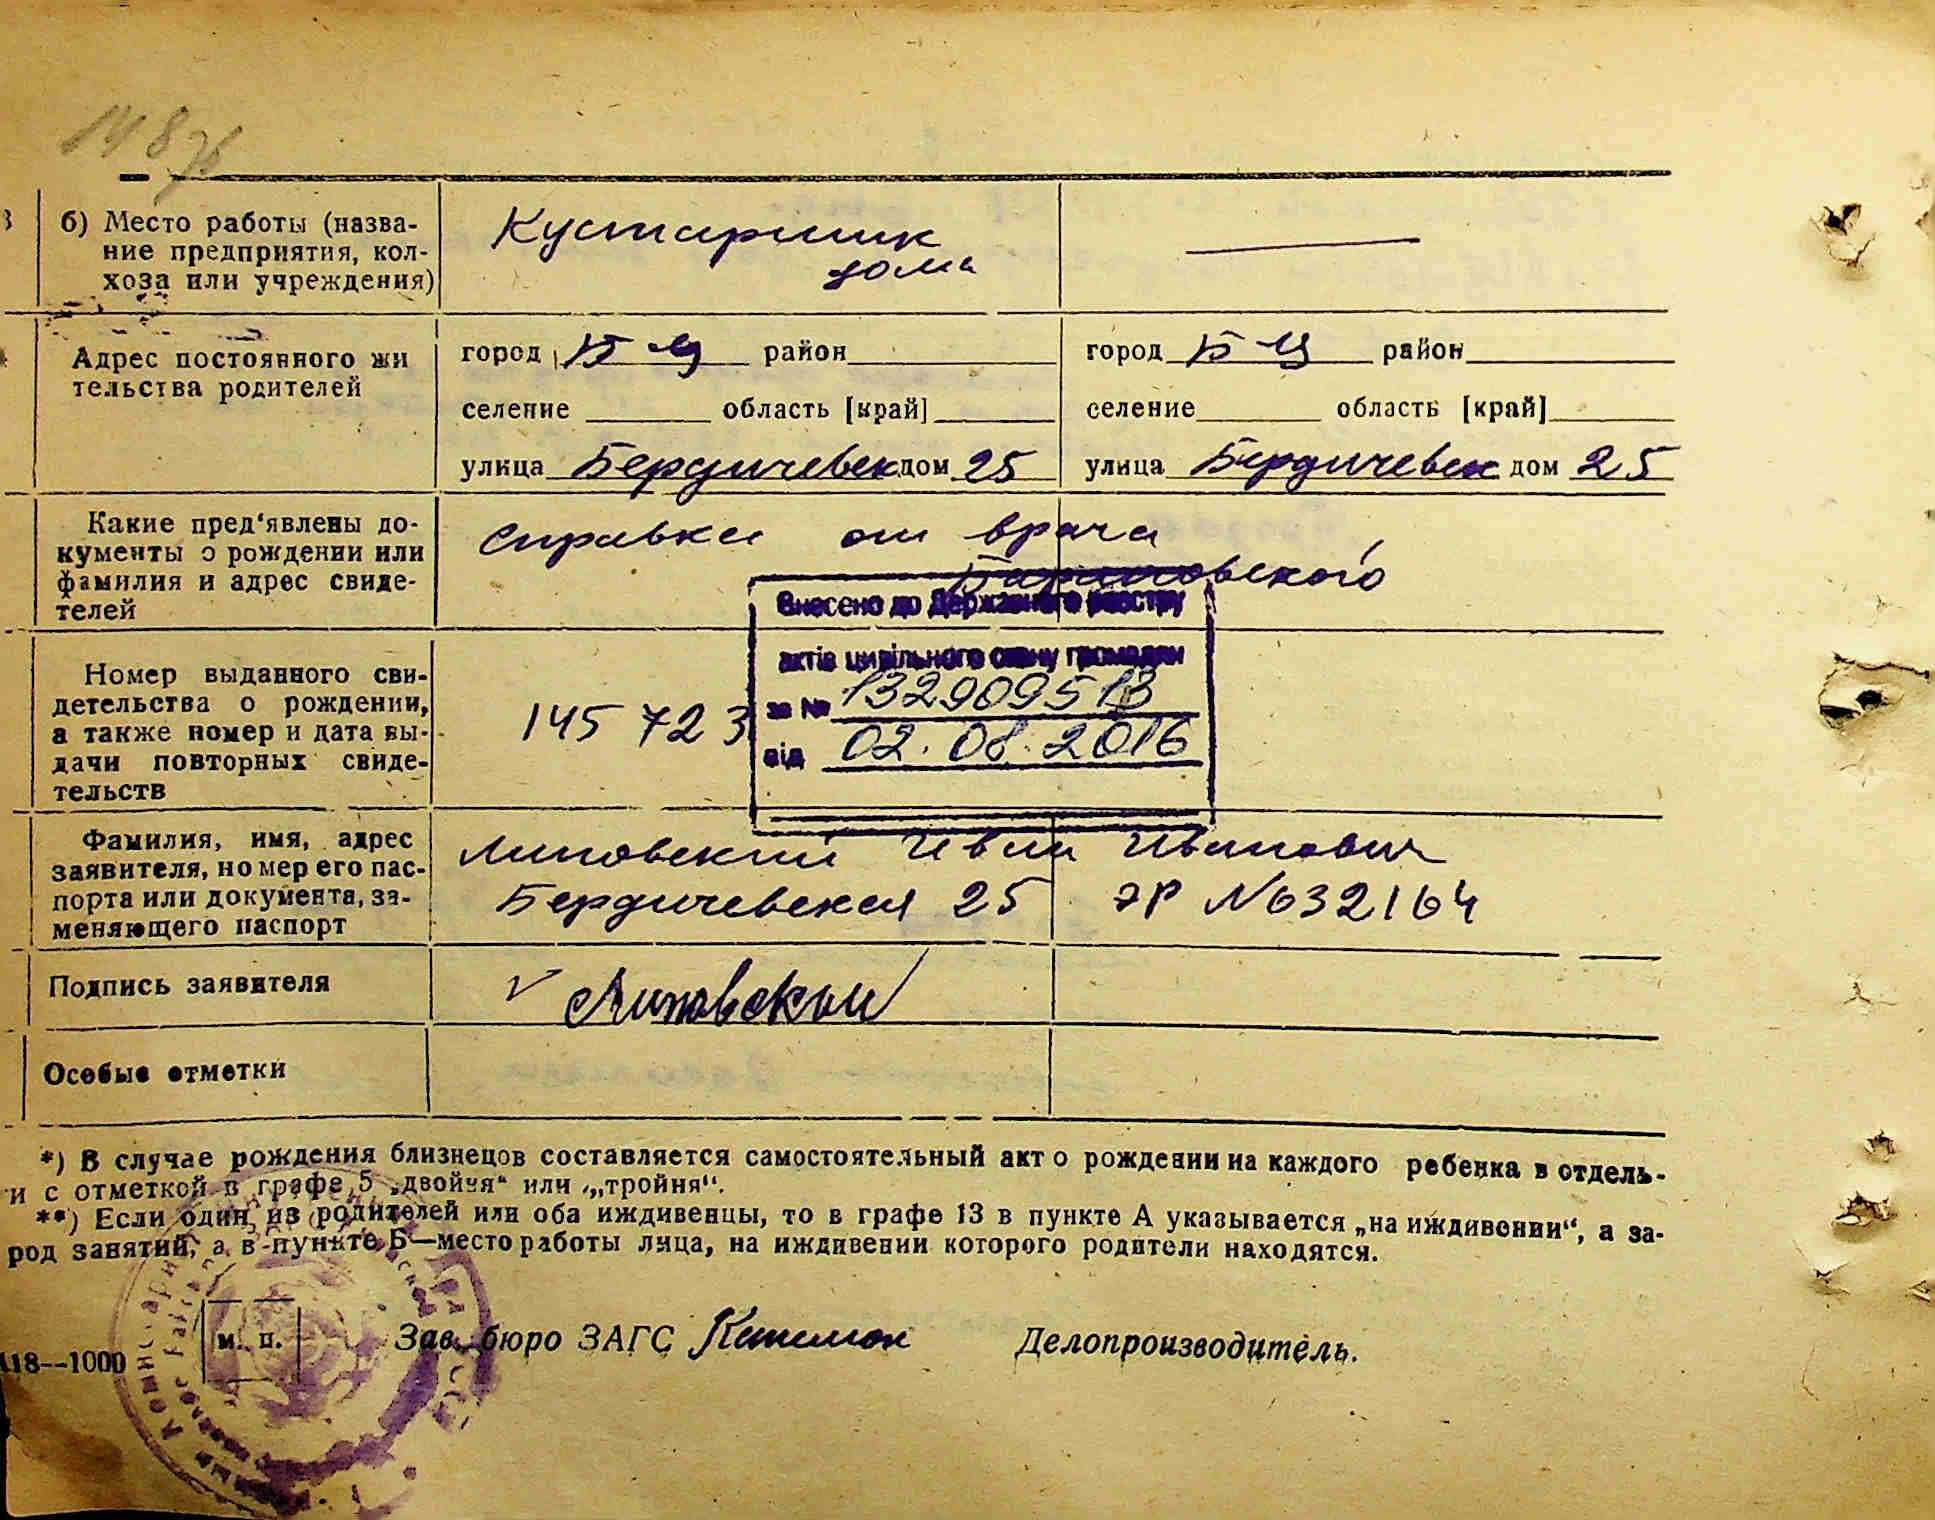 148
б) Место работы (назва-
ние предприятия, кол-
хоза или учреждения)
Кустарник
дома
Адрес постоянного жи
тельства родителей
город Б-Ц район
селение область [край]
улица Бердичевск дом 25
город Б-Ц район
селение область [край]
улица Бердичевск дом 25
Какие пред‘явлены до-
кументы о рождении или
фамилия и адрес свиде-
телей
Справка от врача
Внесено до Державного реєстру
актів цивільного стану громадян
за № 1329095 13
від 02.08.2016
Номер выданного сви-
детельства о рождении,
а также номер и дата вы-
дачи повторных свиде-
тельств
145 723
Фамилия, имя, адрес
заявителя, номер его пас-
порта или документа, за-
меняющего паспорт
Липовский Иван Иванович
Бердичевская 25 ЭР №632164
Подпись заявителя
Липовский
Особые отметки
*) В случае рождения близнецов составляется самостоятельный акт о рождении на каждого ребенка в отдель-
и с отметкой в графе 5 „двойня“ или „тройня“.
**) Если один из родителей или оба иждивенцы, то в графе 13 в пункте А указывается „на иждивении“, а за-
род занятий, а в пункте Б—место работы лица, на иждивении которого родители находятся.
м. п.
Зав. бюро ЗАГС
Делопроизводитель.
118--1000